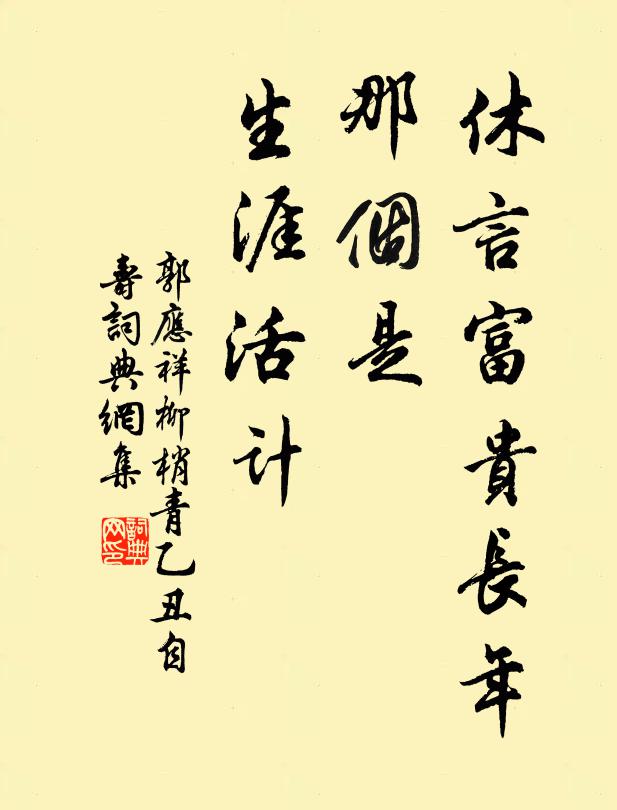 休言富貴長年
那個是
生涯活計
郭應祥柳梢青乙丑自
壽詞典網集
詞典网印